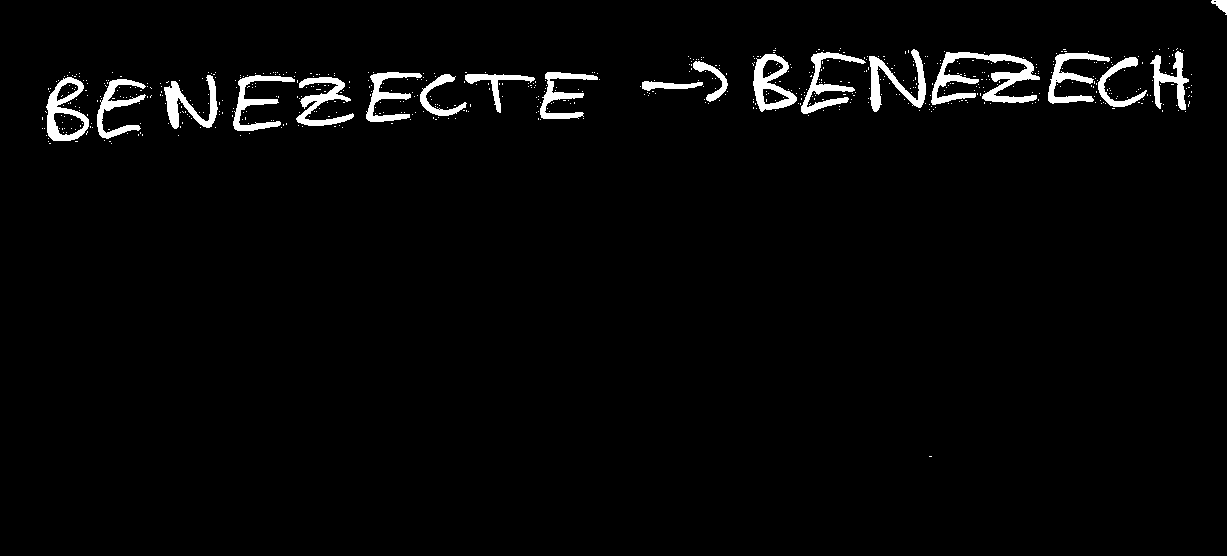 BENEZECTE → BENEZECH